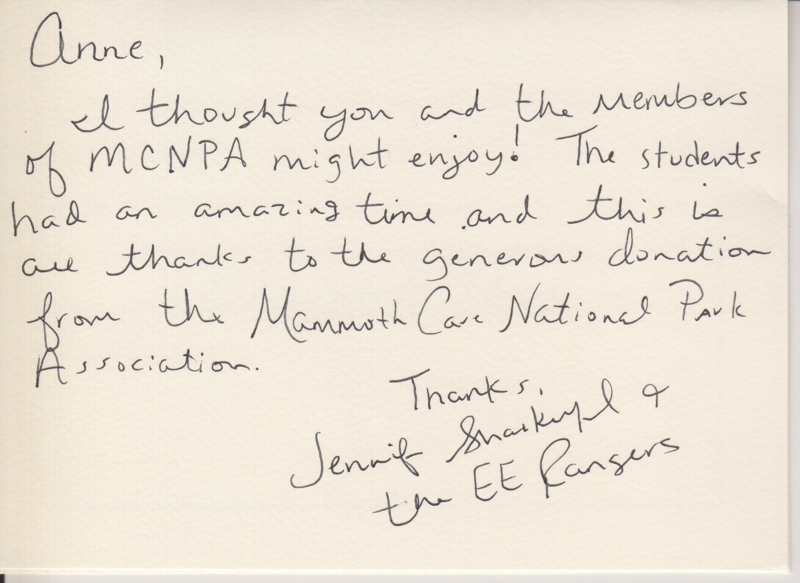 Anne,
I thought you and the members
of MCNPA might enjoy! The students
had an amazing time and this is
all thanks to the generous donation
from the Mammoth Cave National Park
Association.
Thanks,
&
the EE Rangers